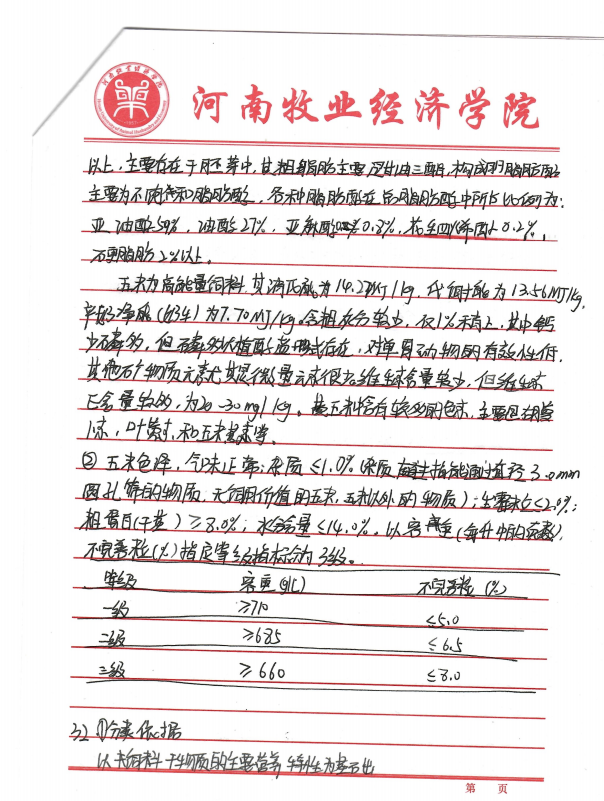 河南牧业经济学院
以上,主要存在于胚芽中,其粗脂肪主要是甘油三酯,构成的脂肪酸
主要为不饱和脂肪酸,各种脂肪酸在总脂肪酸中所占比例为:
亚油酸59%,油酸27%,亚麻酸0.8%,花生四烯酸0.2%,
硬脂肪2%以上。
玉米为高能量饲料,其消化能为14.27MJ/kg,代谢能为13.56MJ/kg,
产奶净能(奶牛)为7.70MJ/kg。含粗灰分较少,仅1%有上,其中钙
少磷多,但磷多以植酸盐形式存在,对单胃动物的有效性低。
其他矿物质元素尤其是微量元素很少。维生素含量较少,但维生素
E含量较多,为20-30mg/kg。黄玉米含有较多的色素,主要包括胡萝
卜素,叶黄素,和玉米黄素等。
② 玉米色泽,气味正常;杂质≤1.0%(杂质指能通过直径3.0mm
圆孔筛的物质,无饲用价值的玉米,玉米以外的物质);生霉粒≤2.0%;
粗蛋白(干基)≥8.0%;水含量≤14.0%。以容重(每升中的克数),
不完善粒(%)指定等级指标分为3级。
等级 容重(g/L) 不完善粒(%)
一级 ≥710 ≤5.0
二级 ≥685 ≤6.5
三级 ≥660 ≤8.0
32 ①分类依据
以饲料干物质的主要营养特性为基础
第 页